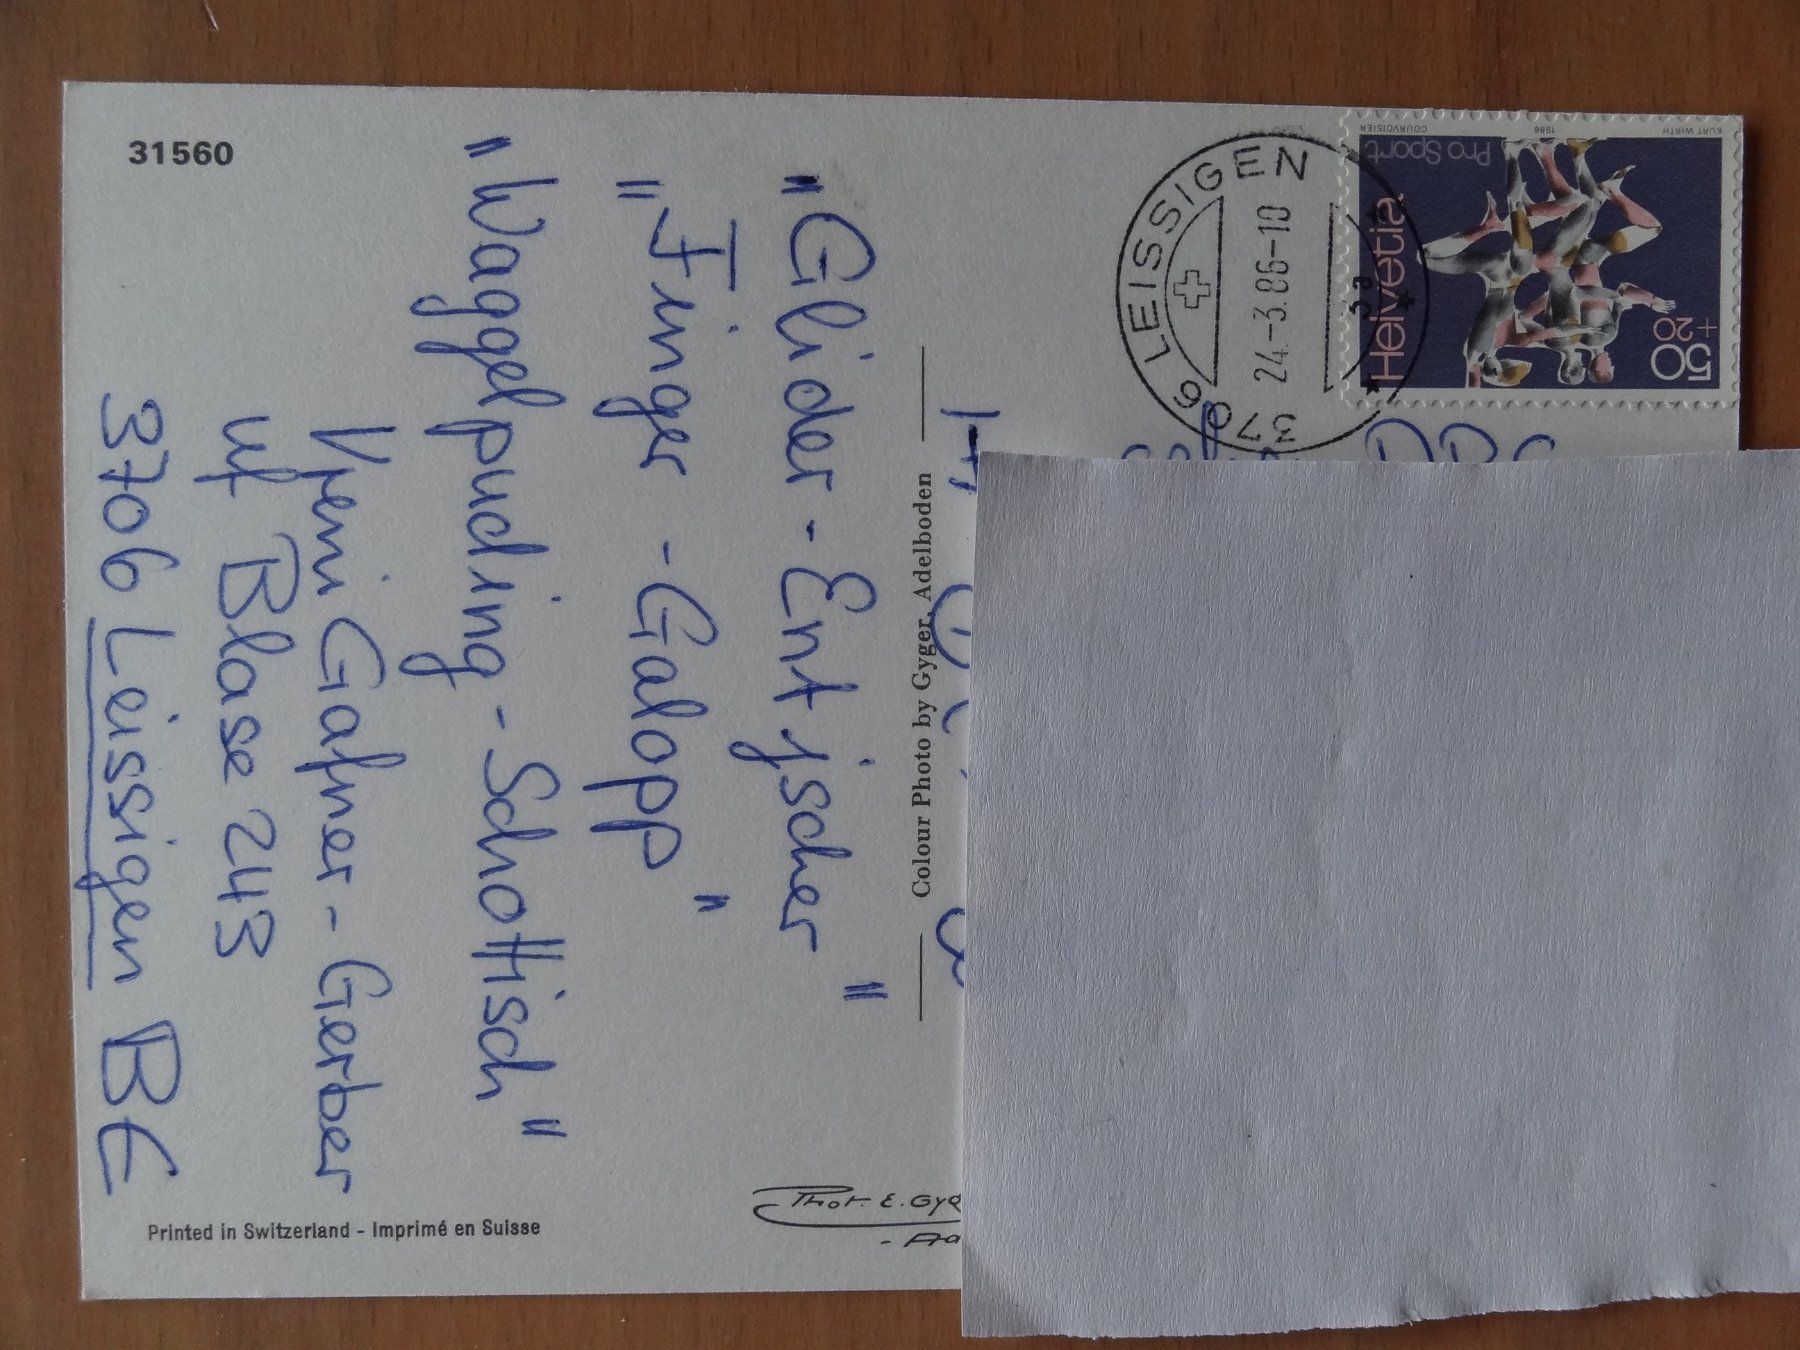 31560
"Glider-Entjscher"
"Finger-Galopp"
"Waggelpudding-Schottisch"
Vreni Gafner-Gerber
uf Blase 243
3706 Leissigen BE
Colour Photo by Gyger, Adelboden
Printed in Switzerland - Imprimé en Suisse
Phot. E. Gyg
3706 LEISSIGEN
24.-3.86-10
3a
Helvetia
50
+20
Pro Sport
KURT WIRTH 1986 COURVOISIER